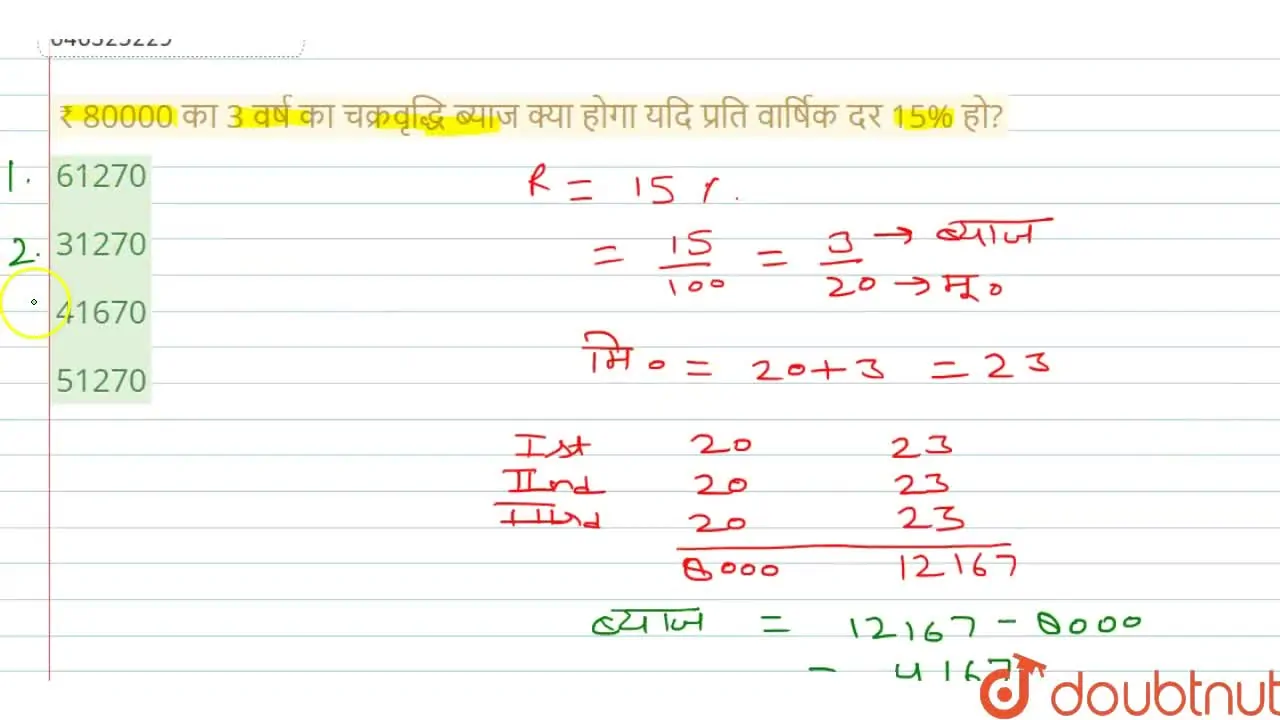 ₹ 80000 का 3 वर्ष का चक्रवृद्धि ब्याज क्या होगा यदि प्रति वार्षिक दर 15% हो?
1. 61270
2. 31270
41670
51270
R = 15 %.
= 15/100 = 3/20 → ब्याज
→ मू०
मि० = 20+3 = 23
Ist 20 23
IInd 20 23
IIIrd 20 23
8000 12167
ब्याज = 12167 - 8000
- 4167
doubtnut